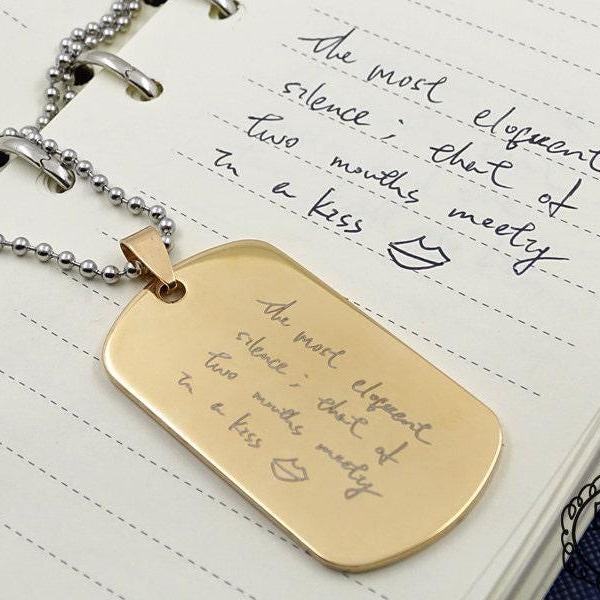 the most eloquent
silence; that of
two mouths meety
in a kiss
the most eloquent
silence; that of
two mouths meety
in a kiss